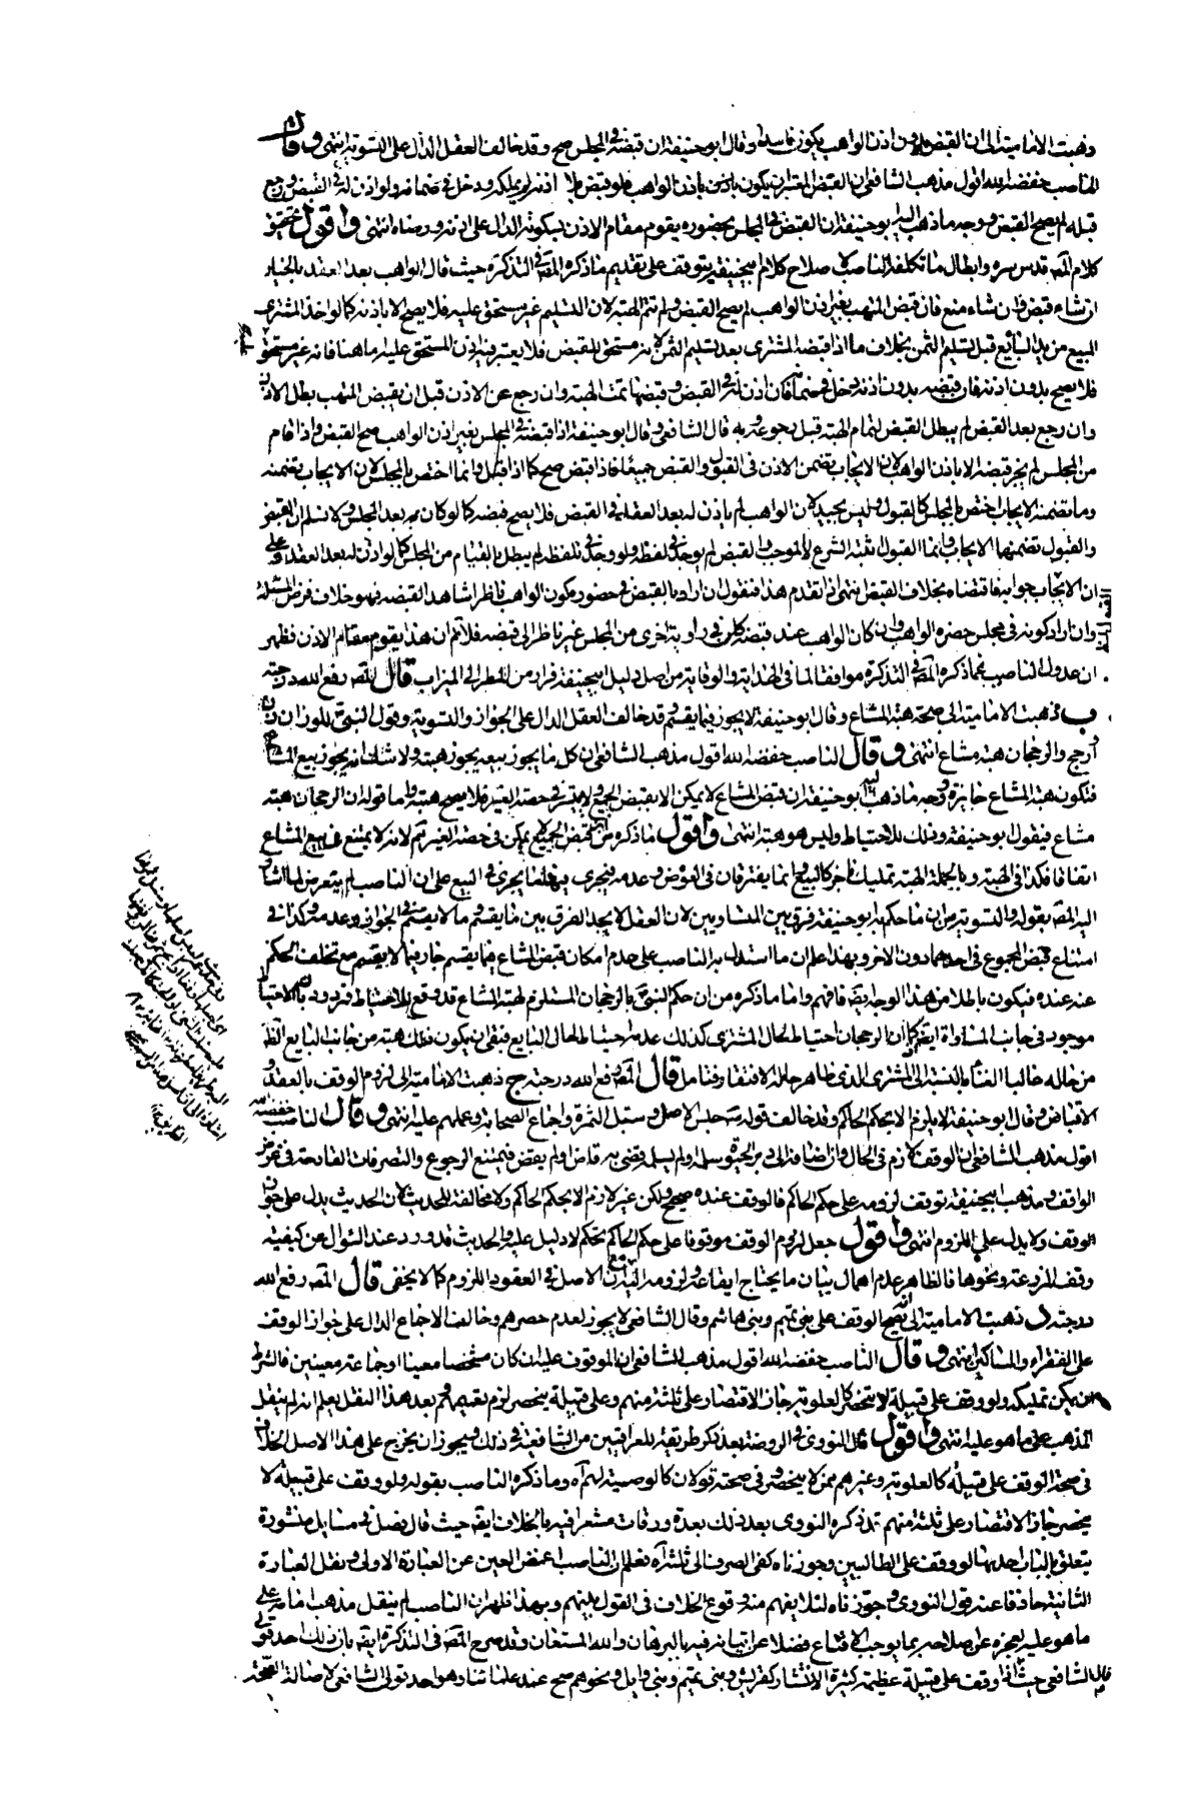 ذهبت الامامية الى ان القبض بدون اذن الواهب يكون فاسدا وقال ابو حنيفة ان قبضه في المجلس صح وقد خالف العقل الدال على التسوية انتهى وقال
الناصب خفضه الله اقول مذهب الشافعي ان القبض المعتبر ان يكون باذن الواهب فلو قبض بلا اذنه لم يملكه ودخل في ضمانه ولو اذن له في القبض ورجع
قبله لم يصح القبض ووجه ما ذهب اليه ابو حنيفة ان القبض في المجلس بحضوره يقوم مقام الاذن بسكوته الدال على اذنه ورضاه انتهى واقول تحقيق
كلام المص قدس سره وابطال ما تكلفه الناصب لاصلاح كلام ابيحنيفة يتوقف على تقديم ما ذكره المص في التذكرة حيث قال الواهب بعد العقد بالخيار
ان شاء قبض وان شاء منع فان قبض المتهب بغير اذن الواهب لم يصح القبض ولم تتم الهبة لان التسليم غير مستحق عليه فلا يصح الا باذنه كما لو اخذ المشتري
المبيع من يد البائع قبل تسليم الثمن بخلاف ما اذا قبضه المشترى بعد تسليم الثمن لانه مستحق للقبض فلا يعتبر فيه اذن المستحق عليه اما هنا فانه غير مستحق
فلا يصح بدون اذنه فان قبضه بدون اذنه دخل في ضمانه فان اذن له في القبض وقبضها تمت الهبة وان رجع عن الاذن قبل ان يقبض المتهب بطل الاذن
وان رجع بعد القبض لم يبطل القبض لتمام الهبة قبل رجوعه وبه قال الشافعي وقال ابو حنيفة اذا قبضه في المجلس بغير اذن الواهب صح القبض واذا قام
من المجلس لم يجز قبضه الا باذن الواهب لان الايجاب تضمن الاذن في القبول والقبض جميعا فاذا قبض صح كما اذا قبل وانما اختص بالمجلس لان الايجاب تضمنه
وما تضمنه الايجاب اختص بالمجلس كالقبول وليس بجيد لان الواهب لم ياذن له بعد العقد في القبض فلا يصح قبضه كما لو كان بعد المجلس ولا نسلم ان القبض
والقبول تضمنهما الايجاب وانما القبول اثبته الشرع للموجب والقبض لم يوجد في لفظه ولو وجد في لفظه لم يبطل بالقيام من المجلس كما لو اذن له بعد العقد وعلى
ان الايجاب جوابه فاقتضاه بخلاف القبض انتهى اذا تقدم هذا فنقول ان اراد بالقبض في حضوره كون الواهب ناظرا شاهدا لقبضه فهو خلاف فرض المسئلة
وان اراد كونه في مجلس حضره الواهب وان كان الواهب عند قبضه كان في زاوية اخرى من المجلس غير ناظر الى قبضه فلا نم ان هذا يقوم مقام الاذن فظهر
ان عدول الناصب عما ذكره المص في التذكرة موافقا لما في الهداية والوقاية من اصل دليل ابيحنيفة فرار من المطر الى الميزاب قال المص رفع الله درجته
ب ذهبت الامامية الى صحة هبة المشاع وقال ابو حنيفة لا يجوز فيما يقسم وقد خالف العقل الدال على الجواز والتسوية وقول النبي ص للوزان زن
وارجح والرجحان هبة مشاع انتهى وقال الناصب خفضه الله اقول مذهب الشافعي ان كل ما يجوز بيعه يجوز هبته ولا شك انه يجوز بيع المشاع
فتكون هبة المشاع جايزة ووجه ما ذهب اليه ابو حنيفة ان قبض المشاع لا يمكن الا بقبض الجميع ولا يتيسر في حصة الغير فلا يصح هبته واما قوله ان الرجحان هبة
مشاع فيقول ابو حنيفة وذلك للاحتياط وليس هو هبة انتهى واقول ما ذكره من ان قبض الجميع لا يمكن في حصة الغير نم لانه لا يمتنع في بيع المشاع
اتفاقا فكذا في الهبة وبالجملة الهبة تمليك ناجز كالبيع وانما يفترقان في العوض وعدمه فيجرى فيها ما يجرى في البيع على ان الناصب لم يتعرض لما اشار
اليه المص بقوله والتسوية من ان ما حكم به ابو حنيفة فرق بين المتساويين لان العقل لا يجد الفرق بين ما يقسم وما لا يقسم في الجواز وعدمه وكذا في
امتناع قبض المجموع في احدهما دون الاخر وبهذا علم ان ما استدل به الناصب على عدم امكان قبض المشاع فيما يقسم جار فيما لا يقسم مع تخلف الحكم
عنه عنده فيكون باطلا من هذا الوجه ايضا فافهم واما ما ذكره من ان حكم النبي ص بالرجحان المستلزم لهبة المشاع قد وقع للاحتياط فمردود بان الاحتياط
موجود في جانب المساواة ايضا كما ان الرجحان احتياط لحال المشترى كذلك عدمه احتياط لحال البايع فبقى ان يكون ذلك هبة من جانب البايع الظ
من حاله غالبا الغنا بالنسبة الى المشترى الذى ظاهر حاله الافتقار فتامل قال المص رفع الله درجته ج ذهبت الامامية الى لزوم الوقف بالعقد و
الاقباض وقال ابو حنيفة لا يلزم الا بحكم الحاكم وقد خالف قوله ص حبس الاصل وسبل الثمرة واجماع الصحابة وعملهم عليه انتهى وقال الناصب خفضه الله
اقول مذهب الشافعي ان الوقف لازم في الحال وان اضافه الى دبر الحيوة وسلمه او لم يسلمه قضى به قاض او لم يقض فيمتنع الرجوع والتصرفات القادحة في غرض
الواقف ومذهب ابيحنيفة توقف لزومه على حكم الحاكم فالوقف عنده صحيح ولكن غير لازم الا بحكم الحاكم ولا مخالفة للحديث لان الحديث يدل على جواز
الوقف ولا يدل على اللزوم انتهى واقول جعل لزوم الوقف موقوفا على حكم الحاكم تحكم لا دليل عليه والحديث قد ورد عند السؤال عن كيفية
وقف المزرعة ونحوها فالظاهر عدم اهمال بيان ما يحتاج ايقاعه ولزومه اليه مع ان الاصل في العقود اللزوم كما لا يخفى قال المص رفع الله
درجته د ذهبت الامامية الى انه يصح الوقف على بنى تميم وبنى هاشم وقال الشافعي لا يجوز لعدم حصرهم وخالف الاجماع الدال على جواز الوقف
على الفقراء والمساكين انتهى وقال الناصب خفضه الله اقول مذهب الشافعي ان الموقوف عليه ان كان شخصا معينا او جماعة معينين فالشرط
ان يمكن تمليكه ولو وقف على قبيلة لا تنحصر كالعلوية جاز الاقتصار على ثلثة منهم وعلى قبيلة ينحصر لزم تعميمهم وبعد هذا النقل يعلم انه لم ينقل
المذهب على ما هو عليه انتهى واقول قال النووى في الروضة بعد ذكر طريقة للعراقيين من الشافعية في ذلك ويجوز ان يخرج على هذا الاصل الخلاف
في صحة الوقف على قبيلة كالعلوية وغيرهم ممن لا ينحصر وفي صحته قولان كالوصية لهم آه وما ذكره الناصب بقوله ولو وقف على قبيلة لا
ينحصر جاز الاقتصار على ثلثة منهم قد ذكره النووى بعد ذلك بعدة ورقات مشعرا فيه بالخلاف ايضا حيث قال فصل في مسايل منثورة
يتعلق بالباب احديها لو وقف على الطالبيين وجوزناه كفى الصرف الى ثلثة آه فعلم ان الناصب اغمض العين عن العبارة الاولى ونقل العبارة
الثانية حاذفا عنه قول النووى وجوزناه لئلا يفهم منه وقوع الخلاف في القول بينهم وبهذا ظهر ان الناصب لم ينقل مذهب امامه على
ما هو عليه لعجزه عن اصلاحه بما يوجب الاقناع فضلا عن اتيانه فيه بالبرهان والله المستعان وقد صرح المص في التذكرة ايضا بان ذلك احد قولى
الشافعي حيث قال اذا وقف على قبيلة عظيمة كثيرة الانتشار كقريش وبنى تميم وبنى وايل ونحوهم صح عند علمائنا وهو احد قولى الشافعي لاصالة الصحة